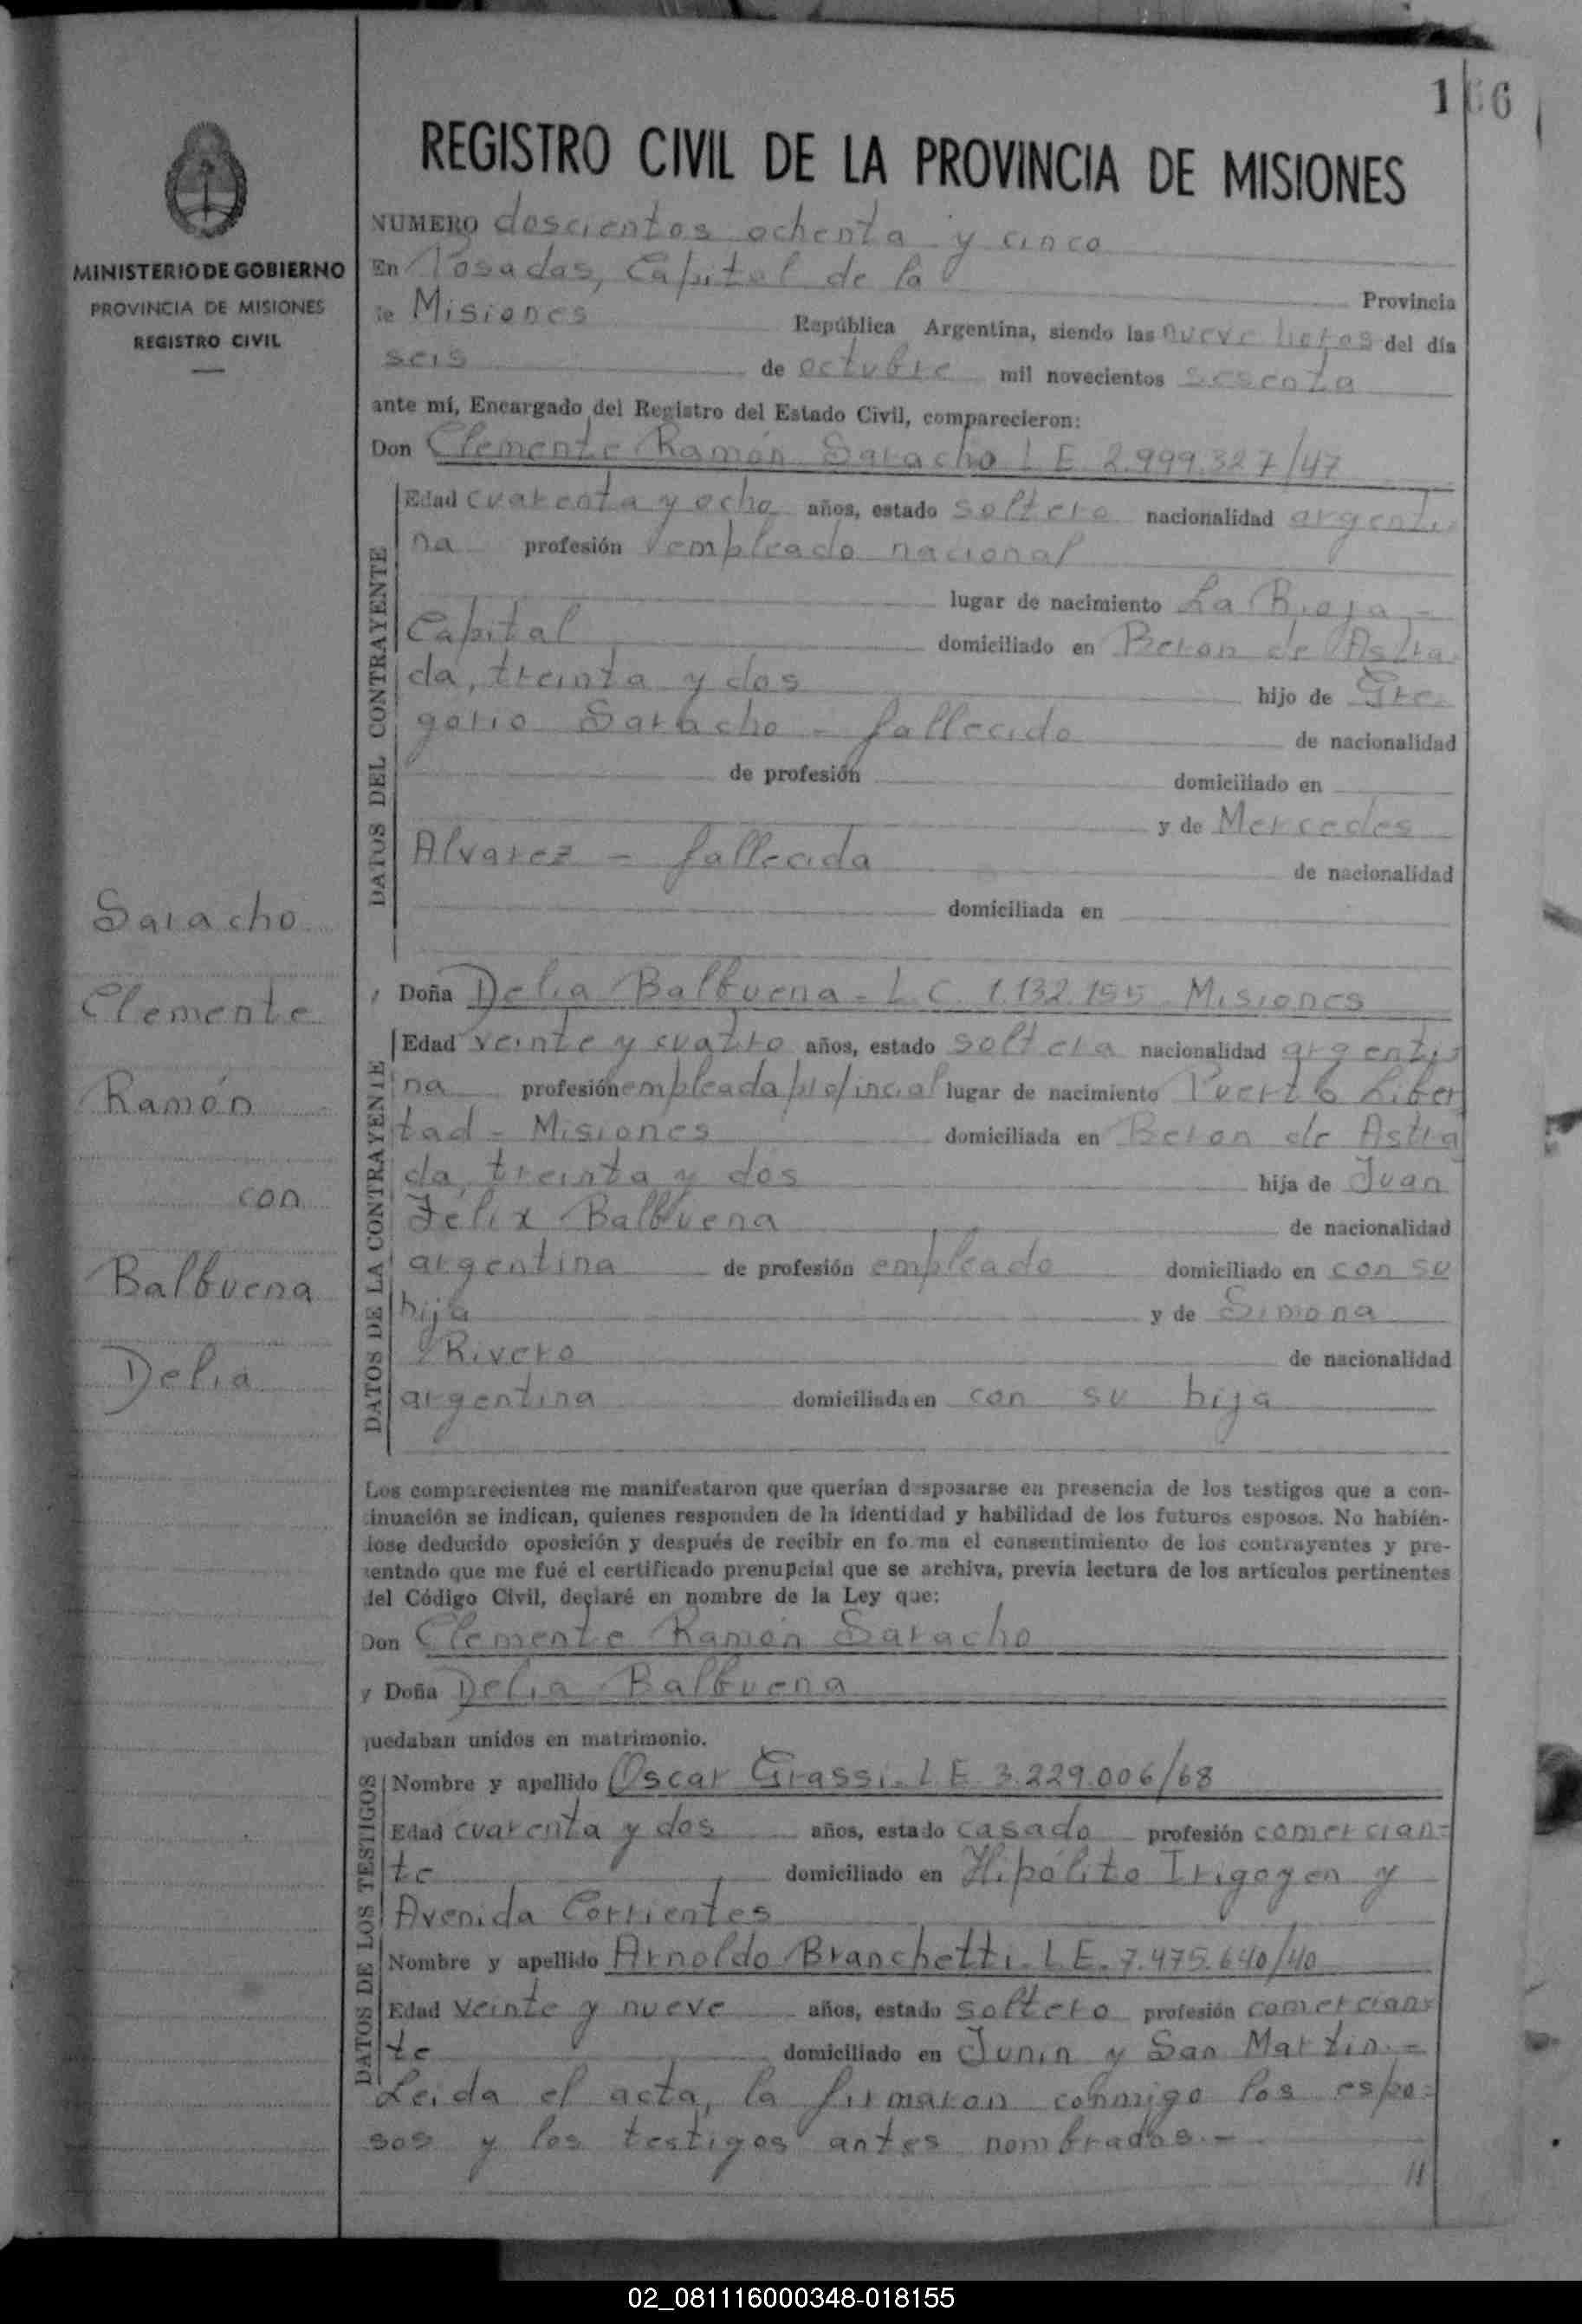 166
REGISTRO CIVIL DE LA PROVINCIA DE MISIONES
MINISTERIO DE GOBIERNO
PROVINCIA DE MISIONES
REGISTRO CIVIL
NUMERO doscientos ochenta y cinco
En Posadas, Capital de la Provincia
de Misiones República Argentina, siendo las nueve horas del día
seis de octubre mil novecientos sesenta
ante mí, Encargado del Registro del Estado Civil, comparecieron:
Don Clemente Ramón Saracho L E 2.999.327/47
DATOS DEL CONTRAYENTE
Edad cuarenta y ocho años, estado soltero nacionalidad argenti
na profesión empleado nacional
lugar de nacimiento La Rioja -
Capital domiciliado en Beron de Astra
da, treinta y dos hijo de Gre
gorio Saracho - fallecido de nacionalidad
de profesión domiciliado en
y de Mercedes
Alvarez - fallecida de nacionalidad
domiciliada en
Saracho
Clemente
Ramón
con
Balbuena
Delia
y Doña Delia Balbuena - L.C. 1.132.155 - Misiones
DATOS DE LA CONTRAYENTE
Edad veinte y cuatro años, estado soltera nacionalidad argenti
na profesión empleada provincial lugar de nacimiento Puerto Liber
tad - Misiones domiciliada en Beron de Astra
da, treinta y dos hija de Juan
Felix Balbuena de nacionalidad
argentina de profesión empleado domiciliado en con su
hija y de Simona
Rivero de nacionalidad
argentina domiciliada en con su hija
Los comparecientes me manifestaron que querían desposarse en presencia de los testigos que a con-
tinuación se indican, quienes responden de la identidad y habilidad de los futuros esposos. No habién-
dose deducido oposición y después de recibir en forma el consentimiento de los contrayentes y pre-
sentado que me fué el certificado prenupcial que se archiva, previa lectura de los artículos pertinentes
del Código Civil, declaré en nombre de la Ley que:
Don Clemente Ramón Saracho
y Doña Delia Balbuena
quedaban unidos en matrimonio.
DATOS DE LOS TESTIGOS
Nombre y apellido Oscar Grassi - L E 3.229.006/68
Edad cuarenta y dos años, estado casado profesión comercian=
te domiciliado en Hipólito Irigoyen y
Avenida Corrientes
Nombre y apellido Arnoldo Branchetti - L.E. 7.475.640/40
Edad veinte y nueve años, estado soltero profesión comercian
te domiciliado en Junin y San Martin.=
Leida el acta, la firmaron conmigo los espo=
sos y los testigos antes nombrados.-
//
02_081116000348-018155